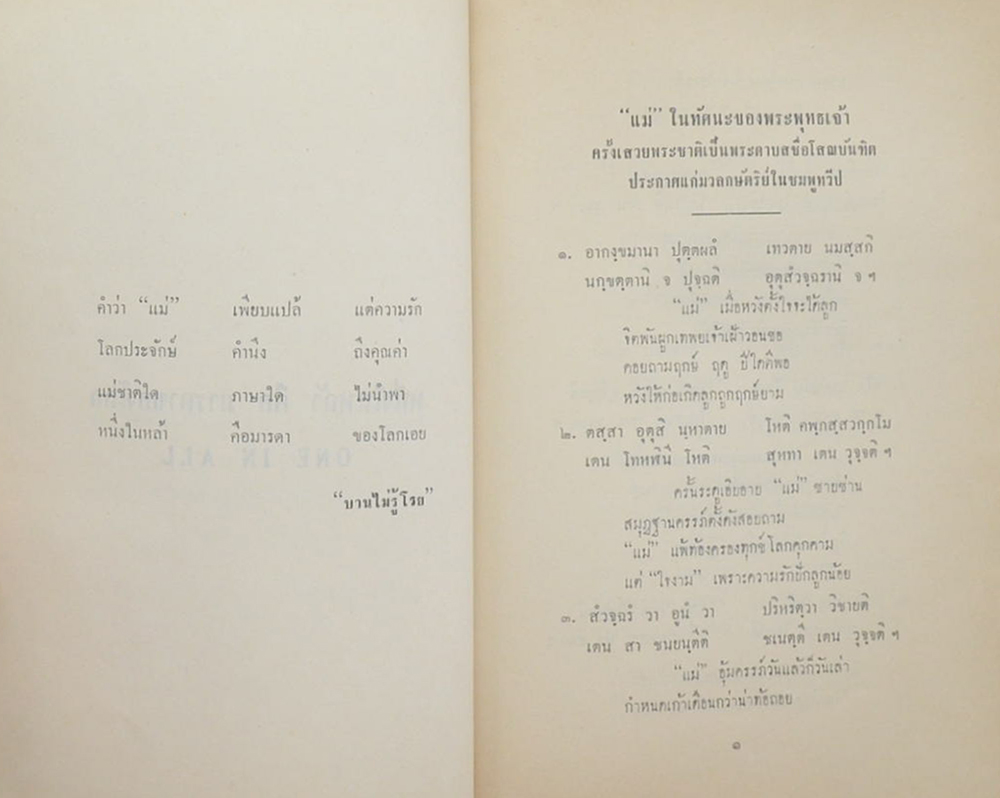 คำว่า “แม่” เพียบแปล้ แต่ความรัก
โลกประจักษ์ คำนึง ถึงคุณค่า
แม่ชาติใด ภาษาใด ไม่นำพา
หนึ่งในหล้า คือมารดา ของโลกเอย
“บานไม่รู้โรย”
“แม่” ในทัศนะของพระพุทธเจ้า
ครั้งเสวยพระชาติเป็นพระดาบสชื่อโสณบันฑิต
ประกาศแก่มวลกษัตริย์ในชมพูทวีป
๑. อากงฺขมานา ปุตฺตผลํ เทวตาย นมสฺสติ
นกฺขตฺตานิ จ ปุจฺฉติ อุตุสํวจฺฉรานิ จ ฯ
“แม่” เมื่อหวังตั้งใจจะใคร่ลูก
จิตพันผูกเทพยเจ้าเฝ้าวอนขอ
คอยถามฤกษ์ ฤดู ปีใดดีพอ
หวังให้ก่อเกิดลูกถูกฤกษ์ยาม
๒. ตสฺสา อุตุสิ นฺหาตาย โหติ คพฺภสฺสวกฺกโม
เตน โทหฬินี โหติ สุหทา เตน วุจฺจติ ฯ
ครั้นระดูเฮือยอาย “แม่” ซายซ่าน
สมุฏฐานครรภ์ตั้งดังสอยถาม
“แม่” แพ้ท้องครองทุกข์โลกคุกคาม
แต่ “ใจงาม” เพราะความรักยักลูกน้อย
๓. สํวจฺฉรํ วา อูนํ วา ปริหริตฺวา วิชายติ
เตน สา ชนยนฺตีติ ชเนตฺตี เตน วุจฺจติ ฯ
“แม่” อุ้มครรภ์วันแล้วก็วันเล่า
กำหนดเก้าเดือนกว่าน่าท้อถอย
๑